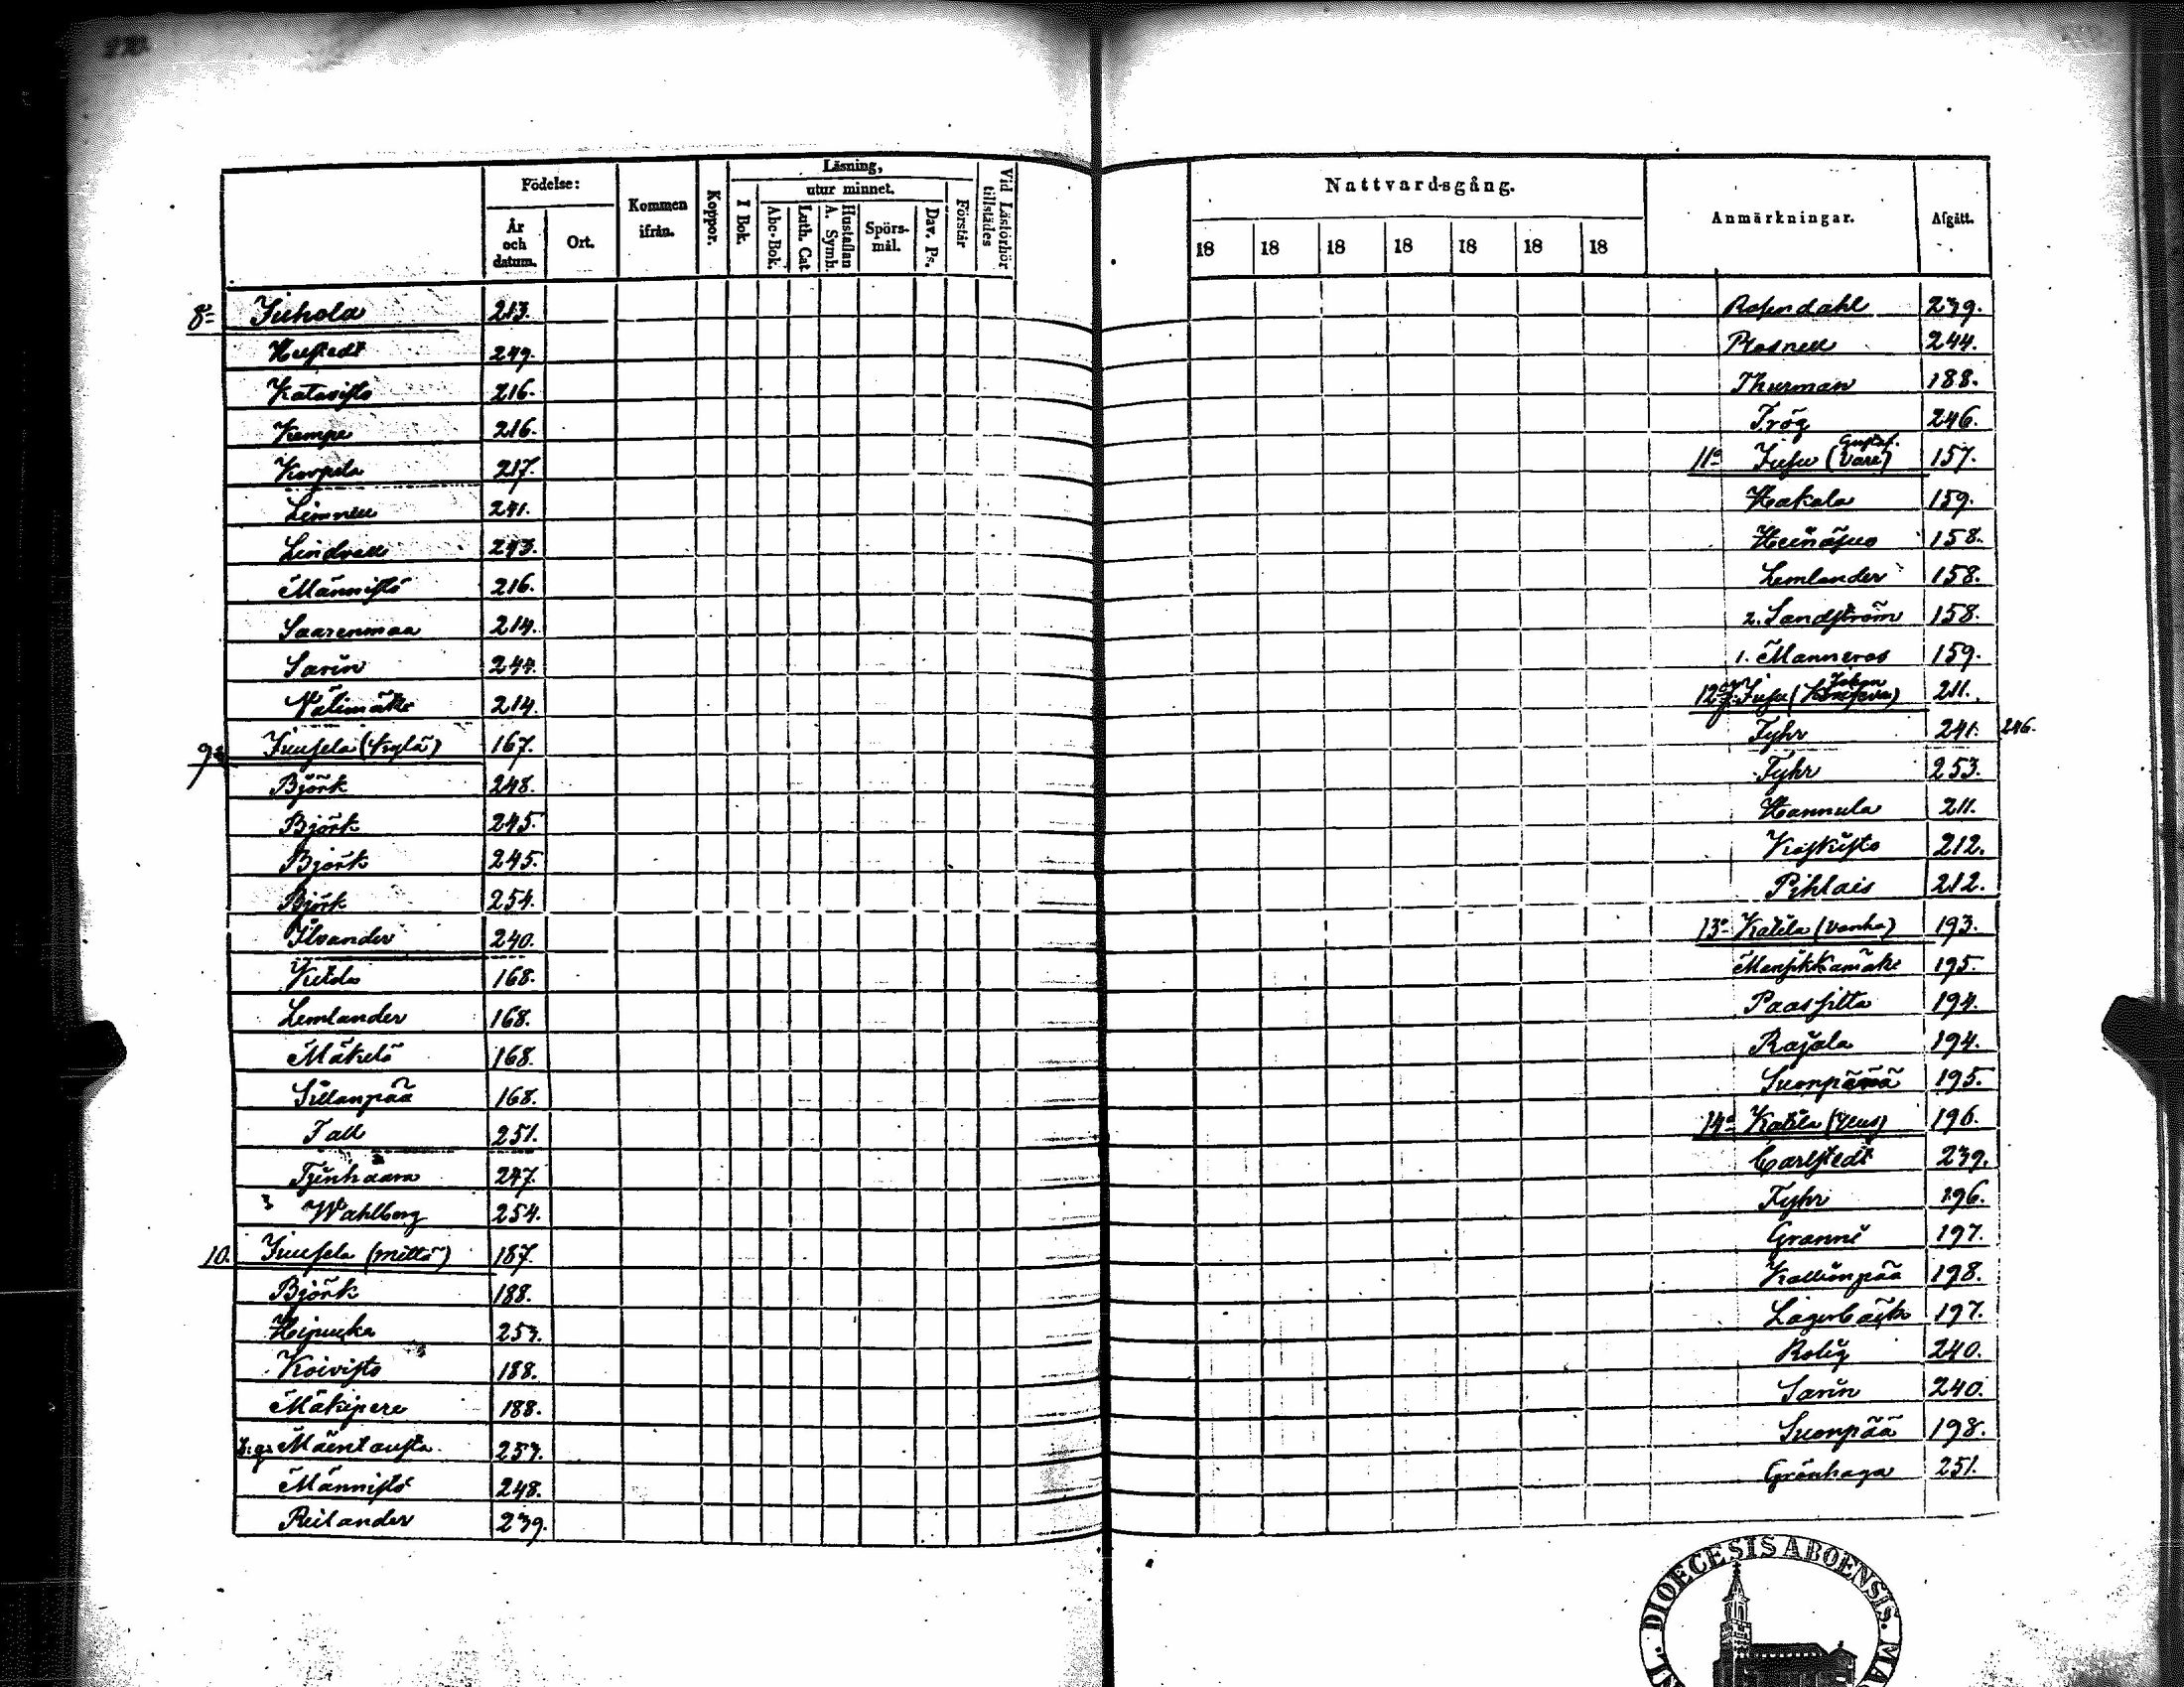 Födelse:
År och datum.
Ort.
Kommen ifrån.
Koppor.
Läsning,
I Bok.
utur minnet.
Abc-Bok.
Luth. Cat.
Hustaflan A. Symb.
Spörs-mål.
Dav. Ps.
Förstår
Vid Läsförhör tillstädes
8. Juhola 213.
249.
Katavisto 216.
Kempe 216.
Korpela 217.
Limnell 241.
Lindvall 243.
Männistö 216.
Saarenmaa 214.
Sarin 244.
Välimäki 214.
9. Juusela (Kylä) 167.
Björk 248.
Björk 245.
Björk 245.
Björk 254.
Ilvander 240.
168.
Lemlander 168.
Mäkelä 168.
Sillanpää 168.
Tall 251.
247.
Wahlberg 254.
10. Juusela (Mellö) 187.
Björk 188.
253.
Koivisto 188.
Mäkipere 188.
Mäentausta 253.
Männistö 248.
Reilander 239.
Nattvardsgång.
18 18 18 18 18 18 18
Anmärkningar.
Afgått.
Rosendahl 239.
Rosnell 244.
Thurman 188.
Trög 246.
11. Jusu (Gustaf Vare) 157.
Hakala 159.
Heinäsuo 158.
Lemlander 158.
2. Sandström 158.
1. Manneros 159.
12. Jusu 211.
Fyhr 241. 246.
Fyhr 253.
Hannula 211.
Koskisto 212.
Pihlais 212.
13. Katila (Vanha) 193.
Mansikkamäki 195.
Paassilta 194.
Rajala 194.
Suonpää 195.
14. Katila (Uus) 196.
Carlstedt 239.
Fyhr 196.
Granni 197.
Kallionpää 198.
Lagerbäck 197.
Rolig 240.
Sarin 240.
Suonpää 198.
Grönhaga 251.
DIOECESIS ABOENSIS.